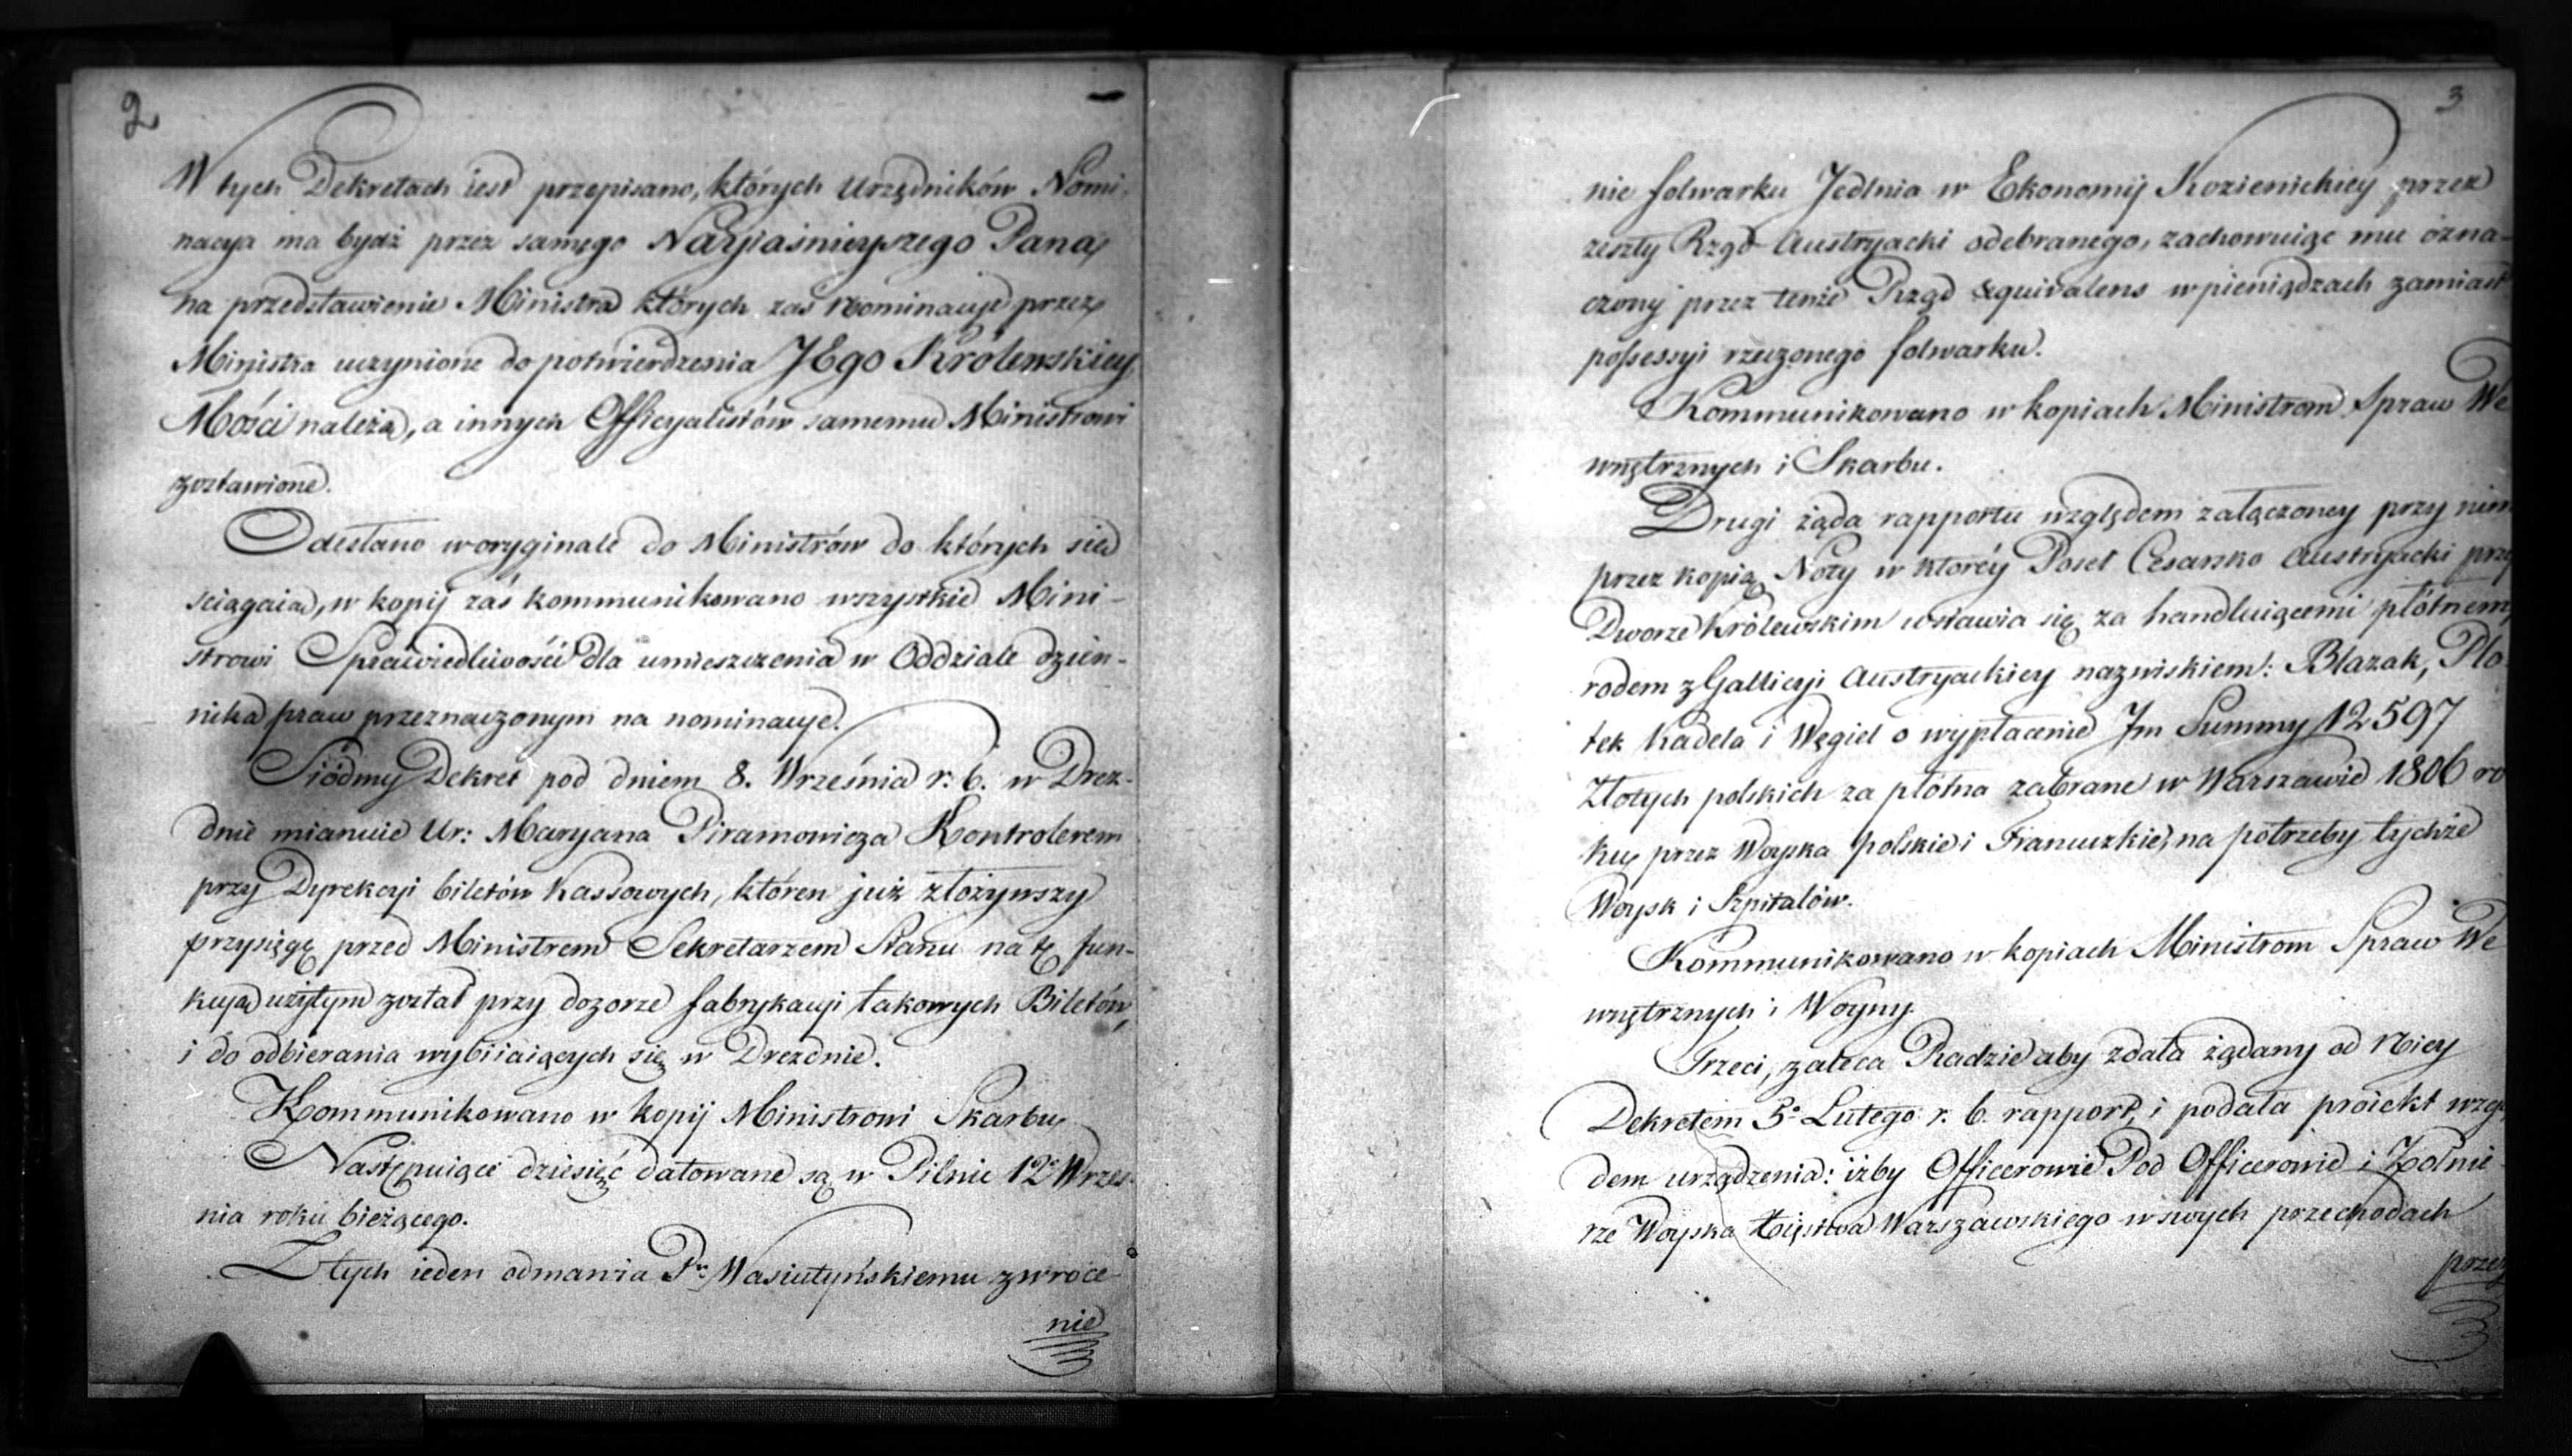 2
W tych Dekretach iest przepisano, których Urzędników Nomi-
nacya ma bydź przez samego Nayiaśnieyszego Pana,
na przedstawienie Ministra których zaś Nominacye przez
Ministra uczynione do potwierdzenia JEgo Królewskiey
Mości należą, a innych Officyalistów samemu Ministrowi
zostawione.
Odesłano w oryginale do Ministrów do których się
sciągaią, w kopij zaś kommunikowano wszystkie Mini-
strowi Sprawiedliwości dla umieszczenia w Oddziale dzien-
nika praw przeznaczonym na nominacye.
Siódmy Dekret pod dniem 8. Września r: b. w Drez-
dnie mianuie Ur: Maryana Piramowicza Kontrolerem
przy Dyrekcyi biletów Kassowych, któren już złożywszy
przysięgę przed Ministrem Sekretarzem Stanu na tę fun-
kcyą użytym został przy dozorze fabrykacyi takowych Biletów,
i do odbierania wybiiaiących się w Dreznie.
Kommunikowano w kopij Ministrowi Skarbu,
Następuiące dziesięć datowane są w Pilnic 12º Wrześ-
nia roku bieżącego.
Z tych ieden odmawia Pu Wasiutyńskiemu zwróce-
nie
3
nie folwarku Jedlnia w Ekonomij Kozienickiey przez
zeszły Rząd Austryacki odebranego, zachowuiąc mu ozna-
czony przez tenże Rząd Equivalens w pieniądzach zamiast
possessyi rzeczonego folwarku.
Kommunikowano w kopiach Ministrom Spraw We
wnętrznych i Skarbu.
Drugi żąda rapportu względem załączoney przy nim
przez kopią Noty w któréy Poseł Cesarsko Austryacki przy
Dworze Królewskim wstawia się za handluiącemi płótnem,
rodem z Gallicyi Austryackiey nazwiskiem: Blazak, Pło-
tek Kadela i Węgiel o wypłacenie Im Summy 12597
Złotych polskich za płótna zabrane w Warszawie 1806 ro
ku, przez Woyska polskie i Francuzkie, na potrzeby tychże
Woysk i Szpitalów.
Kommunikowano w kopiach Ministrom Spraw We
wnętrznych i Woyny.
Trzeci, zaleca Radzie aby zdała żądany od Niey
Dekretem 5º Lutego r. b. rapport, i podała proiekt wzglę
dem urządzenia: iżby Officerowie Pod Officerowie i Żołnie-
rze Woyska Xięstwa Warszawskiego w swych przechodach
przez